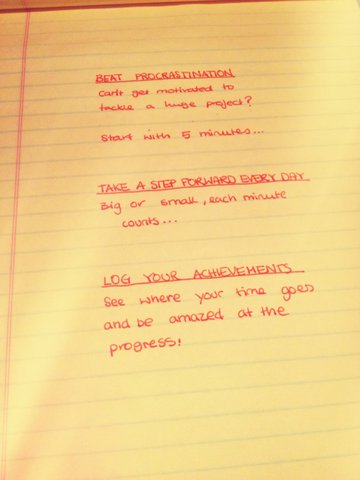 BEAT PROCRASTINATION
Can't get motivated to
tackle a huge project?
Start with 5 minutes...
TAKE A STEP FORWARD EVERY DAY
Big or small, each minute
counts...
LOG YOUR ACHIEVEMENTS
See where your time goes
and be amazed at the
progress!